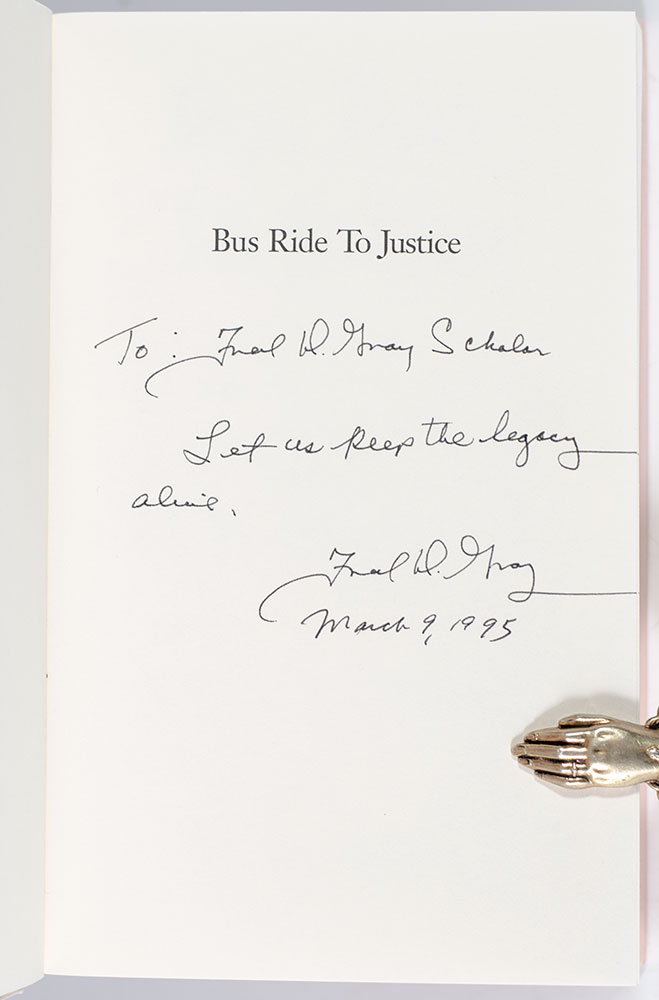 Bus Ride To Justice
To: Fred D. Gray Scholar
Let us keep the legacy
alive.
Fred D. Gray
March 9, 1995